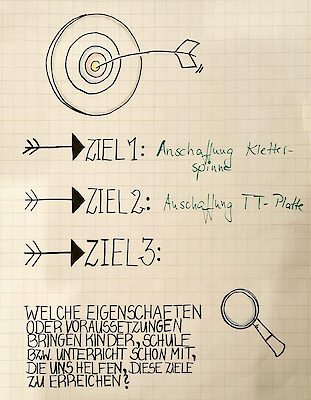 ZIEL 1: Anschaffung Kletter-
spinne
ZIEL 2: Anschaffung TT-Platte
ZIEL 3:
WELCHE EIGENSCHAFTEN
ODER VORAUSSETZUNGEN
BRINGEN KINDER, SCHULE
BZW. UNTERRICHT SCHON MIT,
DIE UNS HELFEN, DIESE ZIELE
ZU ERREICHEN?